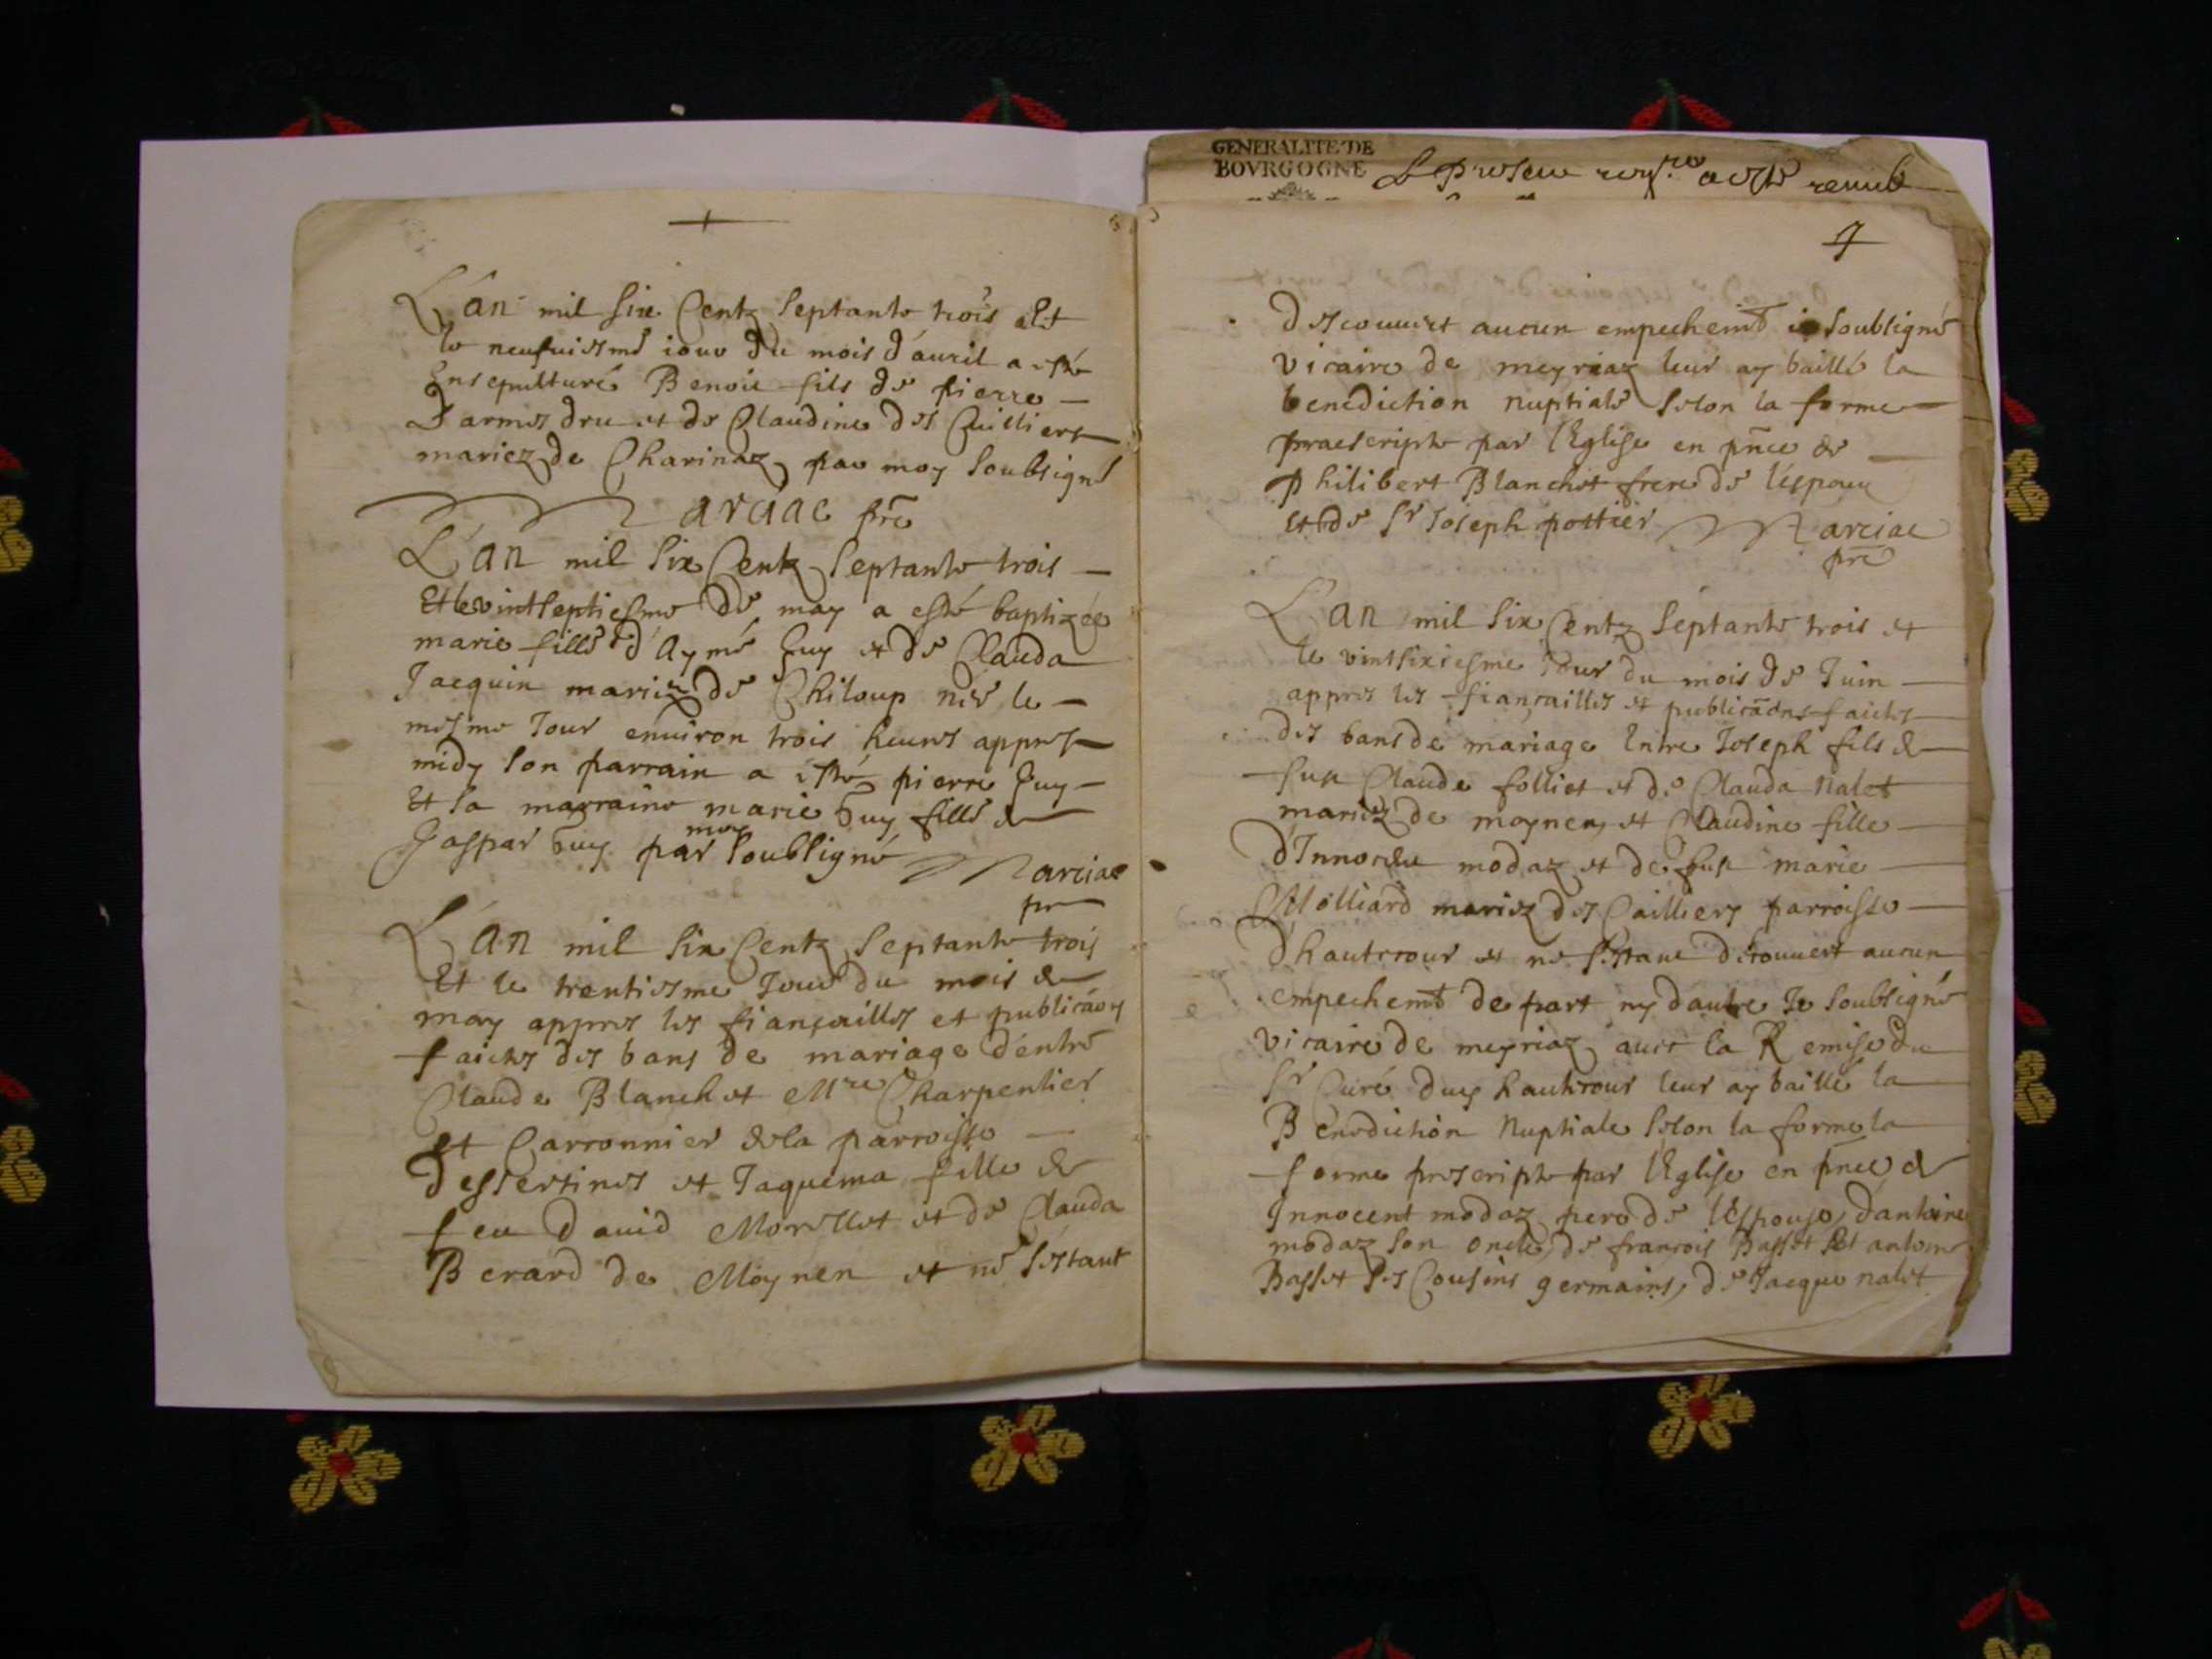 L'an mil six Centz Septante trois et
le neufuiesme iour du mois d'auril a esté
Ensepulturé Benoit fils de pierre
Darmes dru et de Claudine des Cuilliers
mariez de Charinaz par moy Soubsigné
Marciac pre
L'an mil Six Centz Septante trois
Et le vintseptiesme de may a esté baptizée
marie fille d'Aymé Guy et de Clauda
Jacquin mariez de Chiloup née le
mesme Jour enuiron trois heures appres
midy Son parrain a esté pierre Guy
Et Sa marraine marie Guy fille de
Gaspar Guy par moy Soubsigné Marciac
pre
L'an mil Six Centz Septante trois
Et le trentiesme Jour du mois de
may appres les fiançailles et publicãons
faictes des bans de mariage d'entre
Claude Blanchet Mre Charpentier
et Carronnier de la parroisse
dessertines et Jaquema fille de
feu Dauid Morellet et de Clauda
Berard de Moynen et ne S'estant
GENERALITE DE
BOVRGOGNE Le Present a esté
descouuert aucun empechemt ie Soubsigné
vicaire de meyriaz leur ay baillé la
benediction nuptiale Selon la forme
praescripte par l'Eglise en pñce de
Philibert Blanchet frere de l'espoux
Et de Sr Joseph pottier Marciac
pre
L'an mil Six Centz Septante trois et
le vintsixiesme Jour du mois de Juin
appres les fiançailles et publicãons faictes
des bans de mariage Entre Joseph fils de
feu Claude folliet et de Clauda Nalet
mariez de moynen et Claudine fille
d'Innocent modaz et de feu marie
Molliard mariez des Cailliers parroisse
d'hautecour et ne S'estant decouuert aucun
empechemt de part ny d'autre Je Soubsigné
vicaire de meyriaz auec la Remise du
Sr Curé duy hautecour leur ay baillé la
Benediction Nuptiale Selon la forme la
forme prescripte par l'Eglise en pñce de
Innocent modaz pere de l'Espouse, d'antoine
modaz Son oncle, de françois Basset Et antoine
Basset Ses Cousins germains, de Jacque nalet